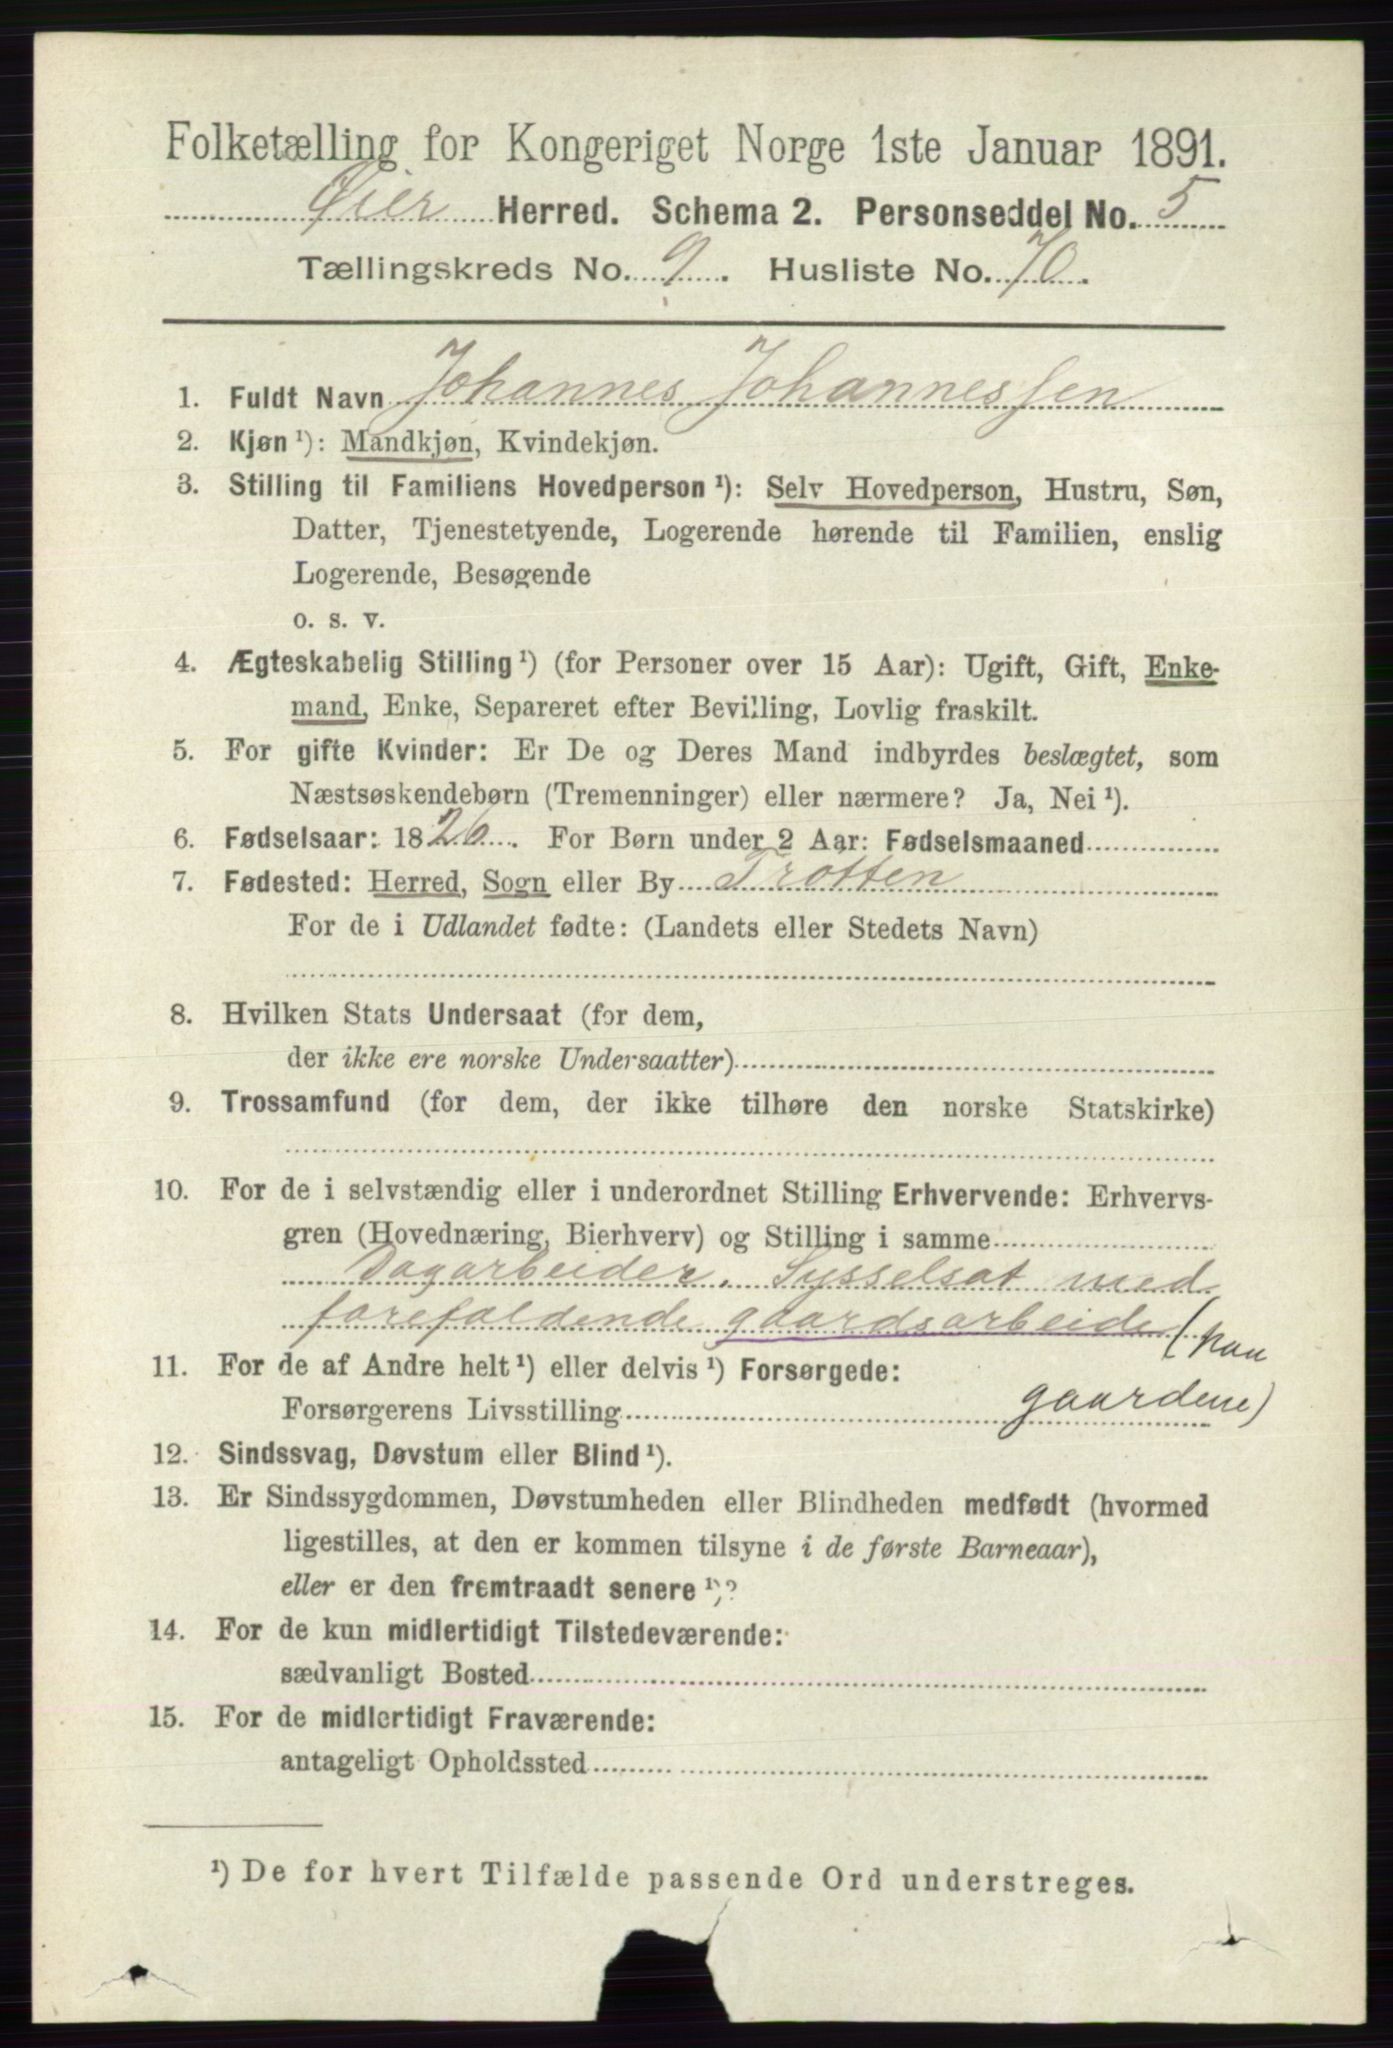 Folketælling for Kongeriget Norge 1ste Januar 1891.
Øier Herred. Schema 2. Personseddel No. 5
Tællingskreds No. 9. Husliste No. 70.
1. Fuldt Navn Johannes Johannessen
2. Kjøn ¹): Mandkjøn, Kvindekjøn.
3. Stilling til Familiens Hovedperson ¹): Selv Hovedperson, Hustru, Søn,
Datter, Tjenestetyende, Logerende hørende til Familien, enslig
Logerende, Besøgende
o. s. v.
4. Ægteskabelig Stilling ¹) (for Personer over 15 Aar): Ugift, Gift, Enke-
mand, Enke, Separeret efter Bevilling, Lovlig fraskilt.
5. For gifte Kvinder: Er De og Deres Mand indbyrdes beslægtet, som
Næstsøskendebørn (Tremenninger) eller nærmere? Ja, Nei ¹).
6. Fødselsaar: 1826. For Børn under 2 Aar: Fødselsmaaned
7. Fødested: Herred, Sogn eller By Trotten
For de i Udlandet fødte: (Landets eller Stedets Navn)
8. Hvilken Stats Undersaat (for dem,
der ikke ere norske Undersaatter)
9. Trossamfund (for dem, der ikke tilhøre den norske Statskirke)
10. For de i selvstændig eller i underordnet Stilling Erhvervende: Erhvervs-
gren (Hovednæring, Bierhverv) og Stilling i samme
Dagarbeider. Sysselsat med
forefaldende gaardsarbeide (paa
11. For de af Andre helt ¹) eller delvis ¹) Forsørgede:
gaardene)
Forsørgerens Livsstilling
12. Sindssvag, Døvstum eller Blind ¹).
13. Er Sindssygdommen, Døvstumheden eller Blindheden medfødt (hvormed
ligestilles, at den er kommen tilsyne i de første Barneaar),
eller er den fremtraadt senere ¹)?
14. For de kun midlertidigt Tilstedeværende:
sædvanligt Bosted
15. For de midlertidigt Fraværende:
antageligt Opholdssted
¹) De for hvert Tilfælde passende Ord understreges.